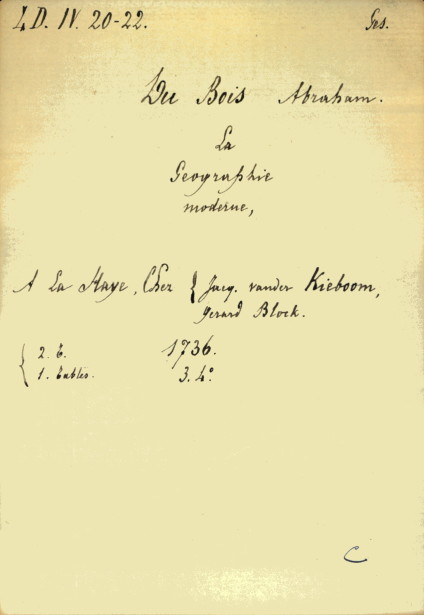 4 D. IV. 20-22.
Du Bois Abraham.
La
Geographie
moderne,
A La Haye, Chez { Jacq. vander Kieboom,
Gerard Block.
{ 2. T. 1736.
1. Tables. 3. 4º
C